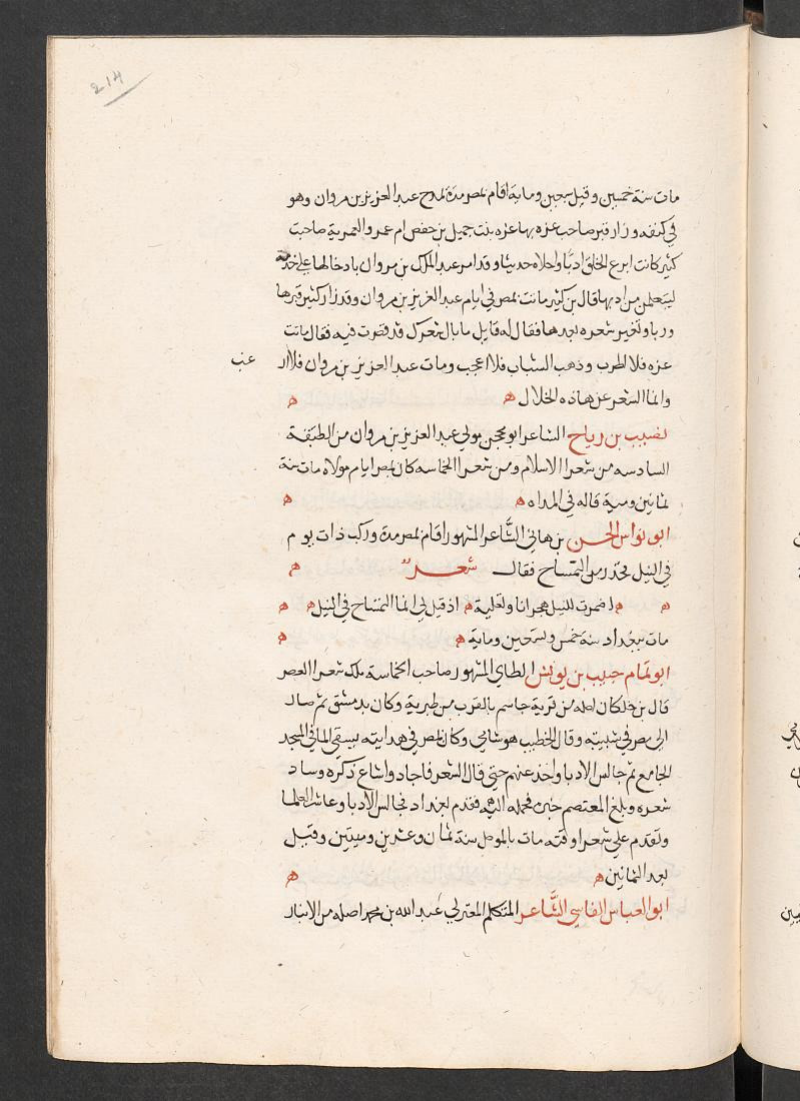 214
مات سنة خمسين وقيل سبعين ومايه اقام بمصر مدة يمدح عبد العزيز بن مروان وهو
في كنفه وزار قبر صاحب عزه بها عزه بنت جميل بن حفص ام عمرو الضمرية صاحبت
كثير كانت ابرع الخلق ادبا واحلاه حديثا وقد امر عبد الملك بن مروان بادخالها على
ليتعلمن من ادبها قال بن كثير ماتت بمصر في ايام عبد العزيز بن مروان وقد زار كثير قبرها
ورباها وتغير شعره بعدها فقال له قايل ما بال شعرك قد قصرت فيه فقال ماتت
عزه فلا اطرب وذهب الشباب فلا اعجب ومات عبد العزيز بن مروان فلا ار
غب
وانما الشعر عن هاذه الخلال ه ه
نصيب بن رباح الشاعر ابو محجن مولى عبد العزيز بن مروان من الطبقة
السادسه من شعرا الاسلام ومن شعرا الحماسه كان بمصر ايام مولاه مات سنة
ثمانين وميه قاله في المراه ه ه
ابو نواس الحسن بن هاني الشاعر المشهور اقام بمصر مدة وركب ذات يوم
في النيل التمساح فقال شعر ه
ه ه اضمرت للنيل هجرانا وتقلية ه اذ قيل لي انما التمساح في النيل ه ه
مات ببغداد سنة خمس وتسعين وماية ه ه
ابو تمام حبيب بن يونس الطاي المشهور صاحب الحماسة ملك شعرا العصر
قال بن خلكان اصله من قرية جاسم بالقرب من طبرية وكان بدمشق ثم صار
الى مصر في شبيبته وقال الخطيب هو شامي وكان بمصر في هدايته يسقي الما في المسجد
الجامع ثم جالس الادبا واخذ عنهم حتى قال الشعر فاجاد واشاع ذكره وساد
شعره وبلغ المعتصم خبره فحمله اليه فقدم بغداد فجالس الادبا وعاشر العلما
وتقدم على شعرا وقته مات بالموصل سنة ثمان وعشرين وميتين وقيل
بعد الثمانين ه ه
ابو العباس الفاسي الشاعر المتكلم المعتزلي عبد الله بن محمد اصله من الانبار